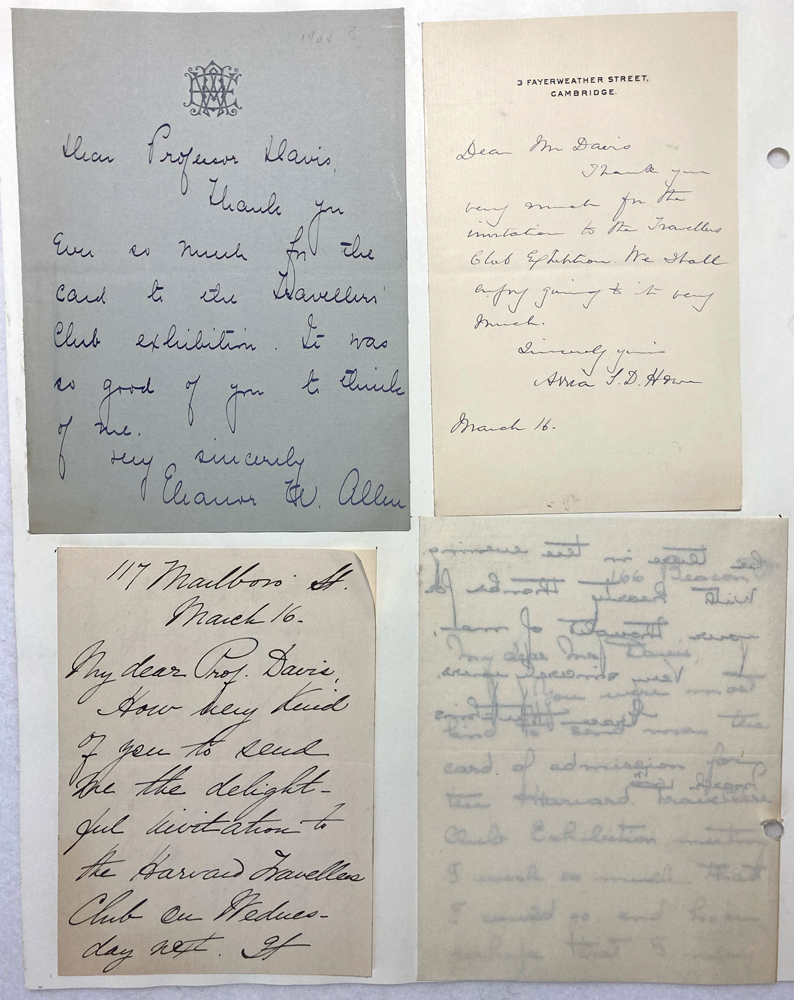 1908 ?
Dear Professor Davis,
Thank you
Ever so much for the
card to the Travellers'
Club exhibition. It was
so good of you to think
of me.
very sincerely
Eleanor W. Allen
3 FAYERWEATHER STREET,
CAMBRIDGE.
Dear Mr Davis
Thank you
very much for the
invitation to the Travellers
Club Exhibition. We shall
enjoy going to it very
much.
Sincerely yours
Anna S. D. Howe
March 16.
117 Marlboro' St.
March 16-
My dear Prof. Davis,
How very kind
of you to send
me the delight-
ful invitation to
the Harvard Travellers
Club on Wednes-
day next. It
be there in the evening
With hearty thanks for
your thought of me,
very sincerely yours
March 16
Beacon
My dear Prof. Davis,
you were most
kind to send me the
card of admission for
the Harvard Travellers
Club Exhibition
I wish so much that
I could go, and
perhaps that I may